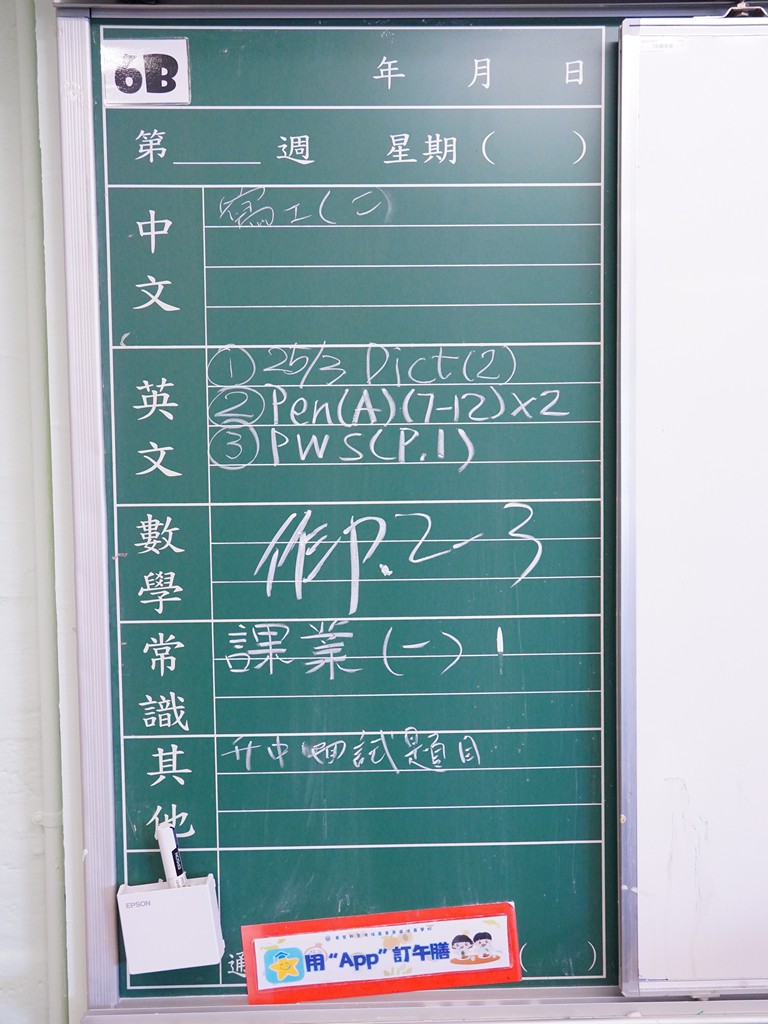 6B
年 月 日
第____週 星期( )
中文
寫工(二)
英文
① 25/3 Dict(2)
② Pen(A)(7-12)×2
③ PWS(P.1)
數學
作P.2-3
常識
課業(一)
其他
升中面試題目
EPSON
用“App”訂午膳
通
( )